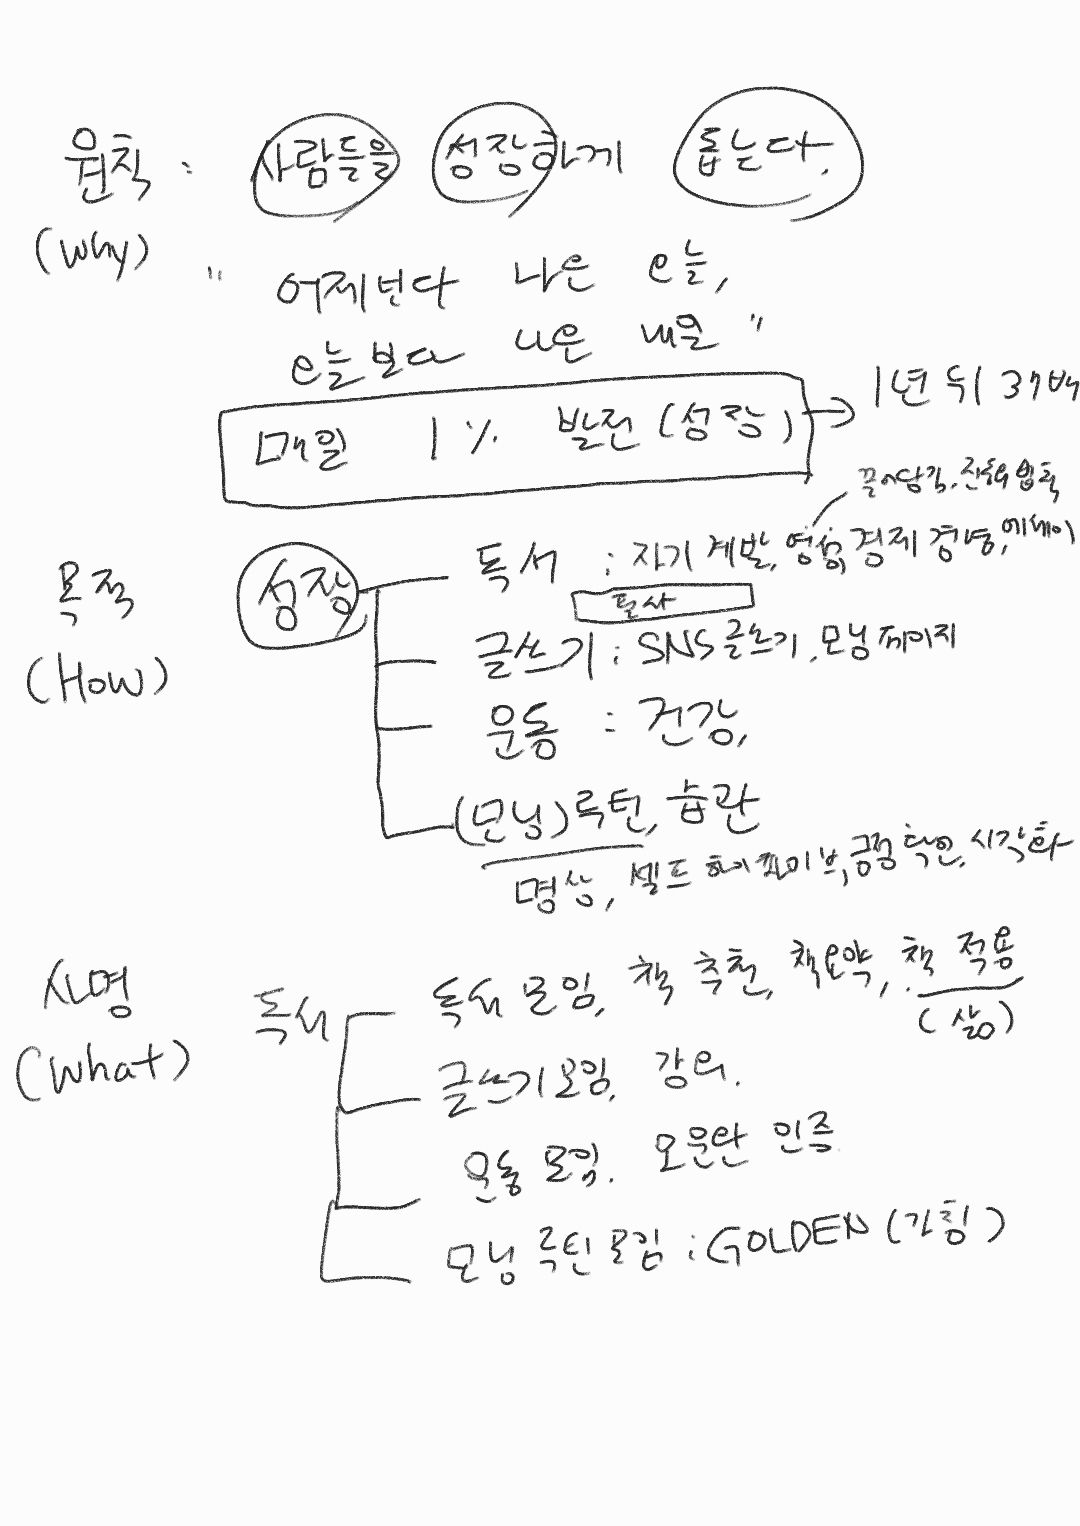 원칙 : 사람들을 성장하게 돕는다.
(Why)
" 어제보다 나은 오늘,
오늘보다 나은 내일 "
매일 1% 발전 (성장) → 1년 뒤 37배
끌어당김,
목적 성장 독서 : 자기계발, 영성, 경제 경영, 에세이
(How)
필사
글쓰기 : SNS 글쓰기, 모닝페이지
운동 : 건강,
(모닝) 루틴, 습관
명상, 셀프 하이파이브, 긍정확언, 시각화
사명 독서 독서 모임, 책 추천, 책요약, 책 적용
(What) (삶)
글쓰기모임, 강의.
운동 모임. 오운완 인증
모닝 루틴모임 : GOLDEN (가칭)